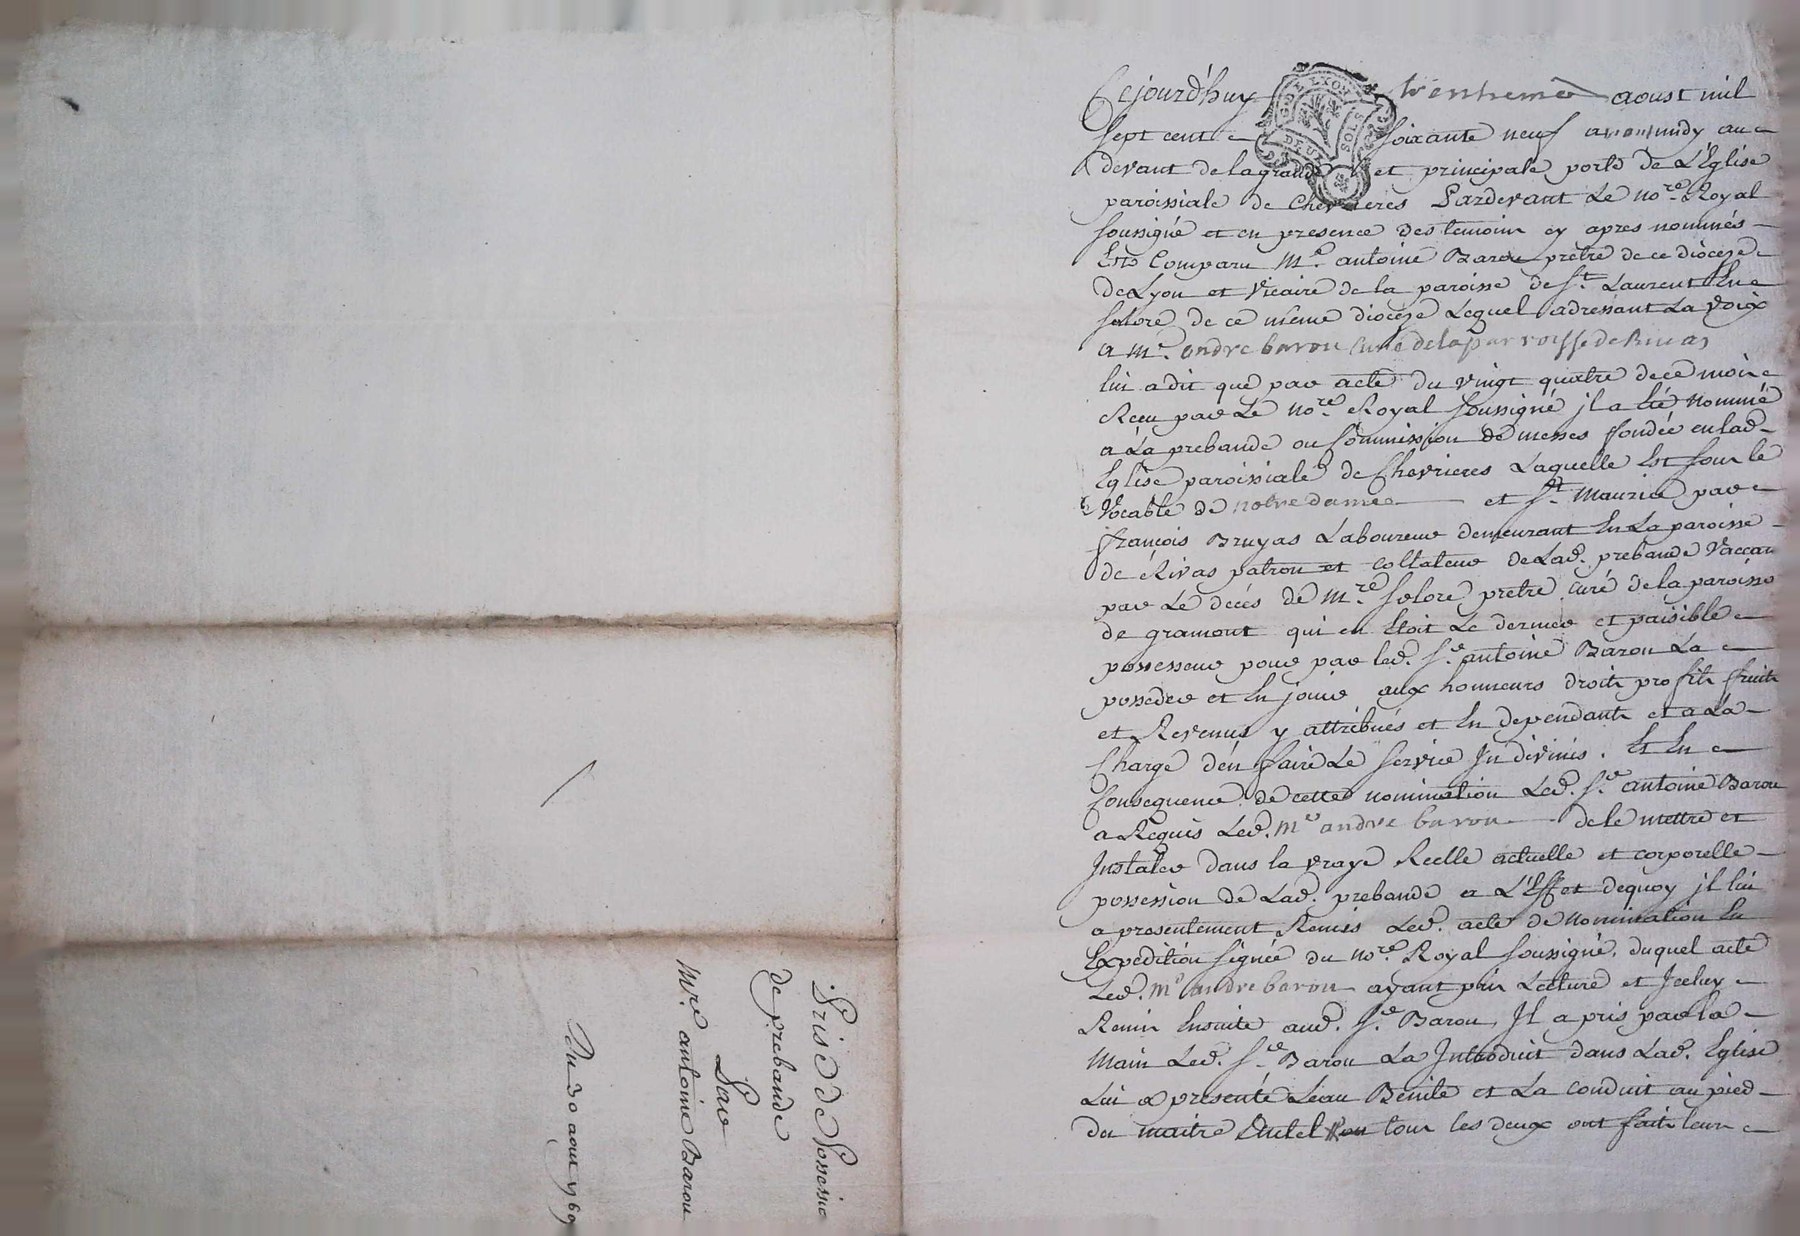 Cejourd'huy trentieme aoust mil
sept cent soixante neuf avant midy au
devant de la grande et principale porte de L'Eglise
paroissiale de Chevrieres Pardevant Le no.re Royal
soussigné et en presence des temoins cy apres nommés
Est Comparu M.e antoine Barou prêtre de ce diocèze
de Lyon et Vicaire de la paroisse de S.t Laurent En
solore de ce même diocèze Lequel adressant La voix
a M.e andre barou Curé de la parroisse de Rivas
lui a dit que par acte du vingt quatre de ce mois
Recu par Le no.re Royal soussigné jl a Eté Nommé
a La prebande ou Commission de messes fondée en lad.
Eglise paroissiale de Chevrieres Laquelle Est sous le
Vocable de notre dame et S.t Maurice par
françois Bruyas Laboureur demeurant En La paroisse
de Rivas patron et collateur de Lad. prebande Vaccan
par Le decès de M.re solore prêtre curé de la paroisse
de gramont qui en Etoit Le dernier et paisible
possesseur pour par led. S.r antoine Barou La
posseder et En jouir aux honneurs droits profits fruits
et Revenus y attribués et En dependants et a La
Charge d'en faire Le service Jn divinis. Et En
Consequence de cette nomination Led. S.r antoine Barou
a Requis Led. M.e andre barou de le mettre et
Jnstaler dans la vraye Reelle actuelle et corporelle
possession de Lad. prebande a L'Effet dequoy jl lui
a presentement Remis Led. acte de Nomination En
Expedition signée du no.re Royal soussigné, duquel acte
Led. M.e andre barou ayant pris Lecture et Jceluy
Remis Ensuite aud. S.r Barou, Jl a pris par la
Main Led. S.r Barou La Jntroduit dans Lad. Eglise
Lui a presenté L'eau Benite et La conduit au pied
du maitre Autel ou tous les deux ont fait leur
Prise de Possession
de prebande
Par
M.re antoine Barou
Du 30 aout 1769
G DE LYON
DEUX SOLS